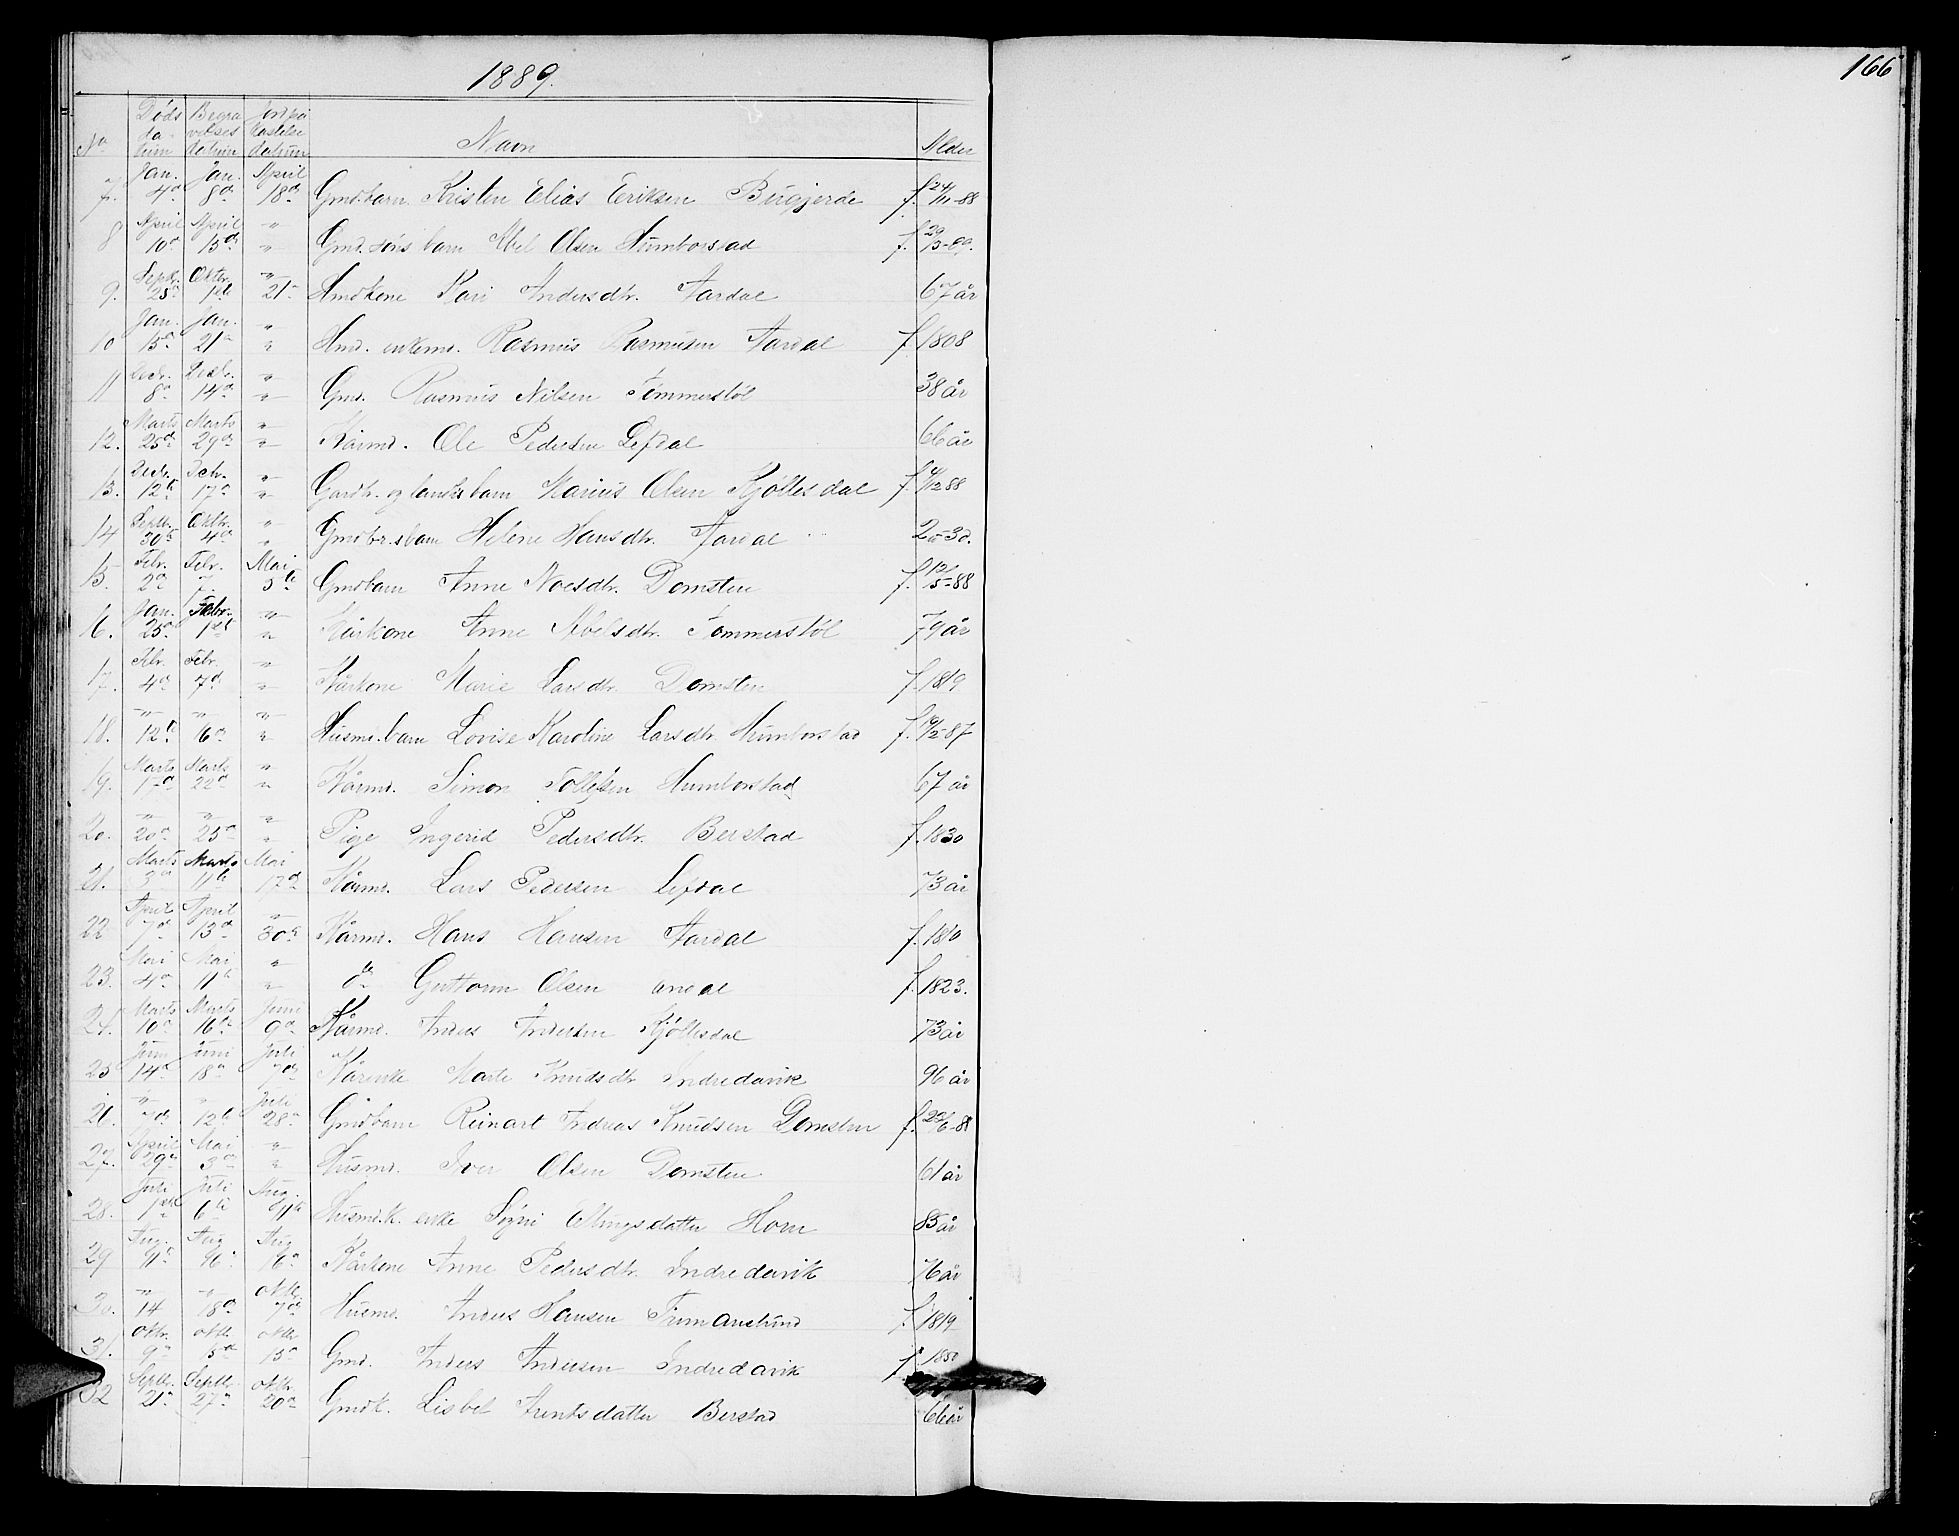 166
1889.
No Døds datum Begravelses datum Jordpåkastelse datum Navn Alder
7. Jan. 4de Jan. 8de April 18de Gmd.barn Kristen Elias Eriksen Bugjerde f. 24/11-88
8 April 10de April 15de " Gmd.søns barn Abel Olsen Humborstad f.
9. Septbr. 25de Oktbr. 1ste 21de Kari Andersdtr. Aardal 67 år
10 Jan. 15de Jan. 21de " enkemd. Rasmus Rasmusen Aardal f. 1808
11 Decbr. 8de Decbr. 14de " Gmd. Rasmus Nilsen Tømmerstøl 38 år
12. Marts 25de Marts 29de " Kårmd. Ole Pedersen Lefdal 66 år
13. Decbr. 12te Dcbr. 17de " barn Marius Olsen Kjøllesdal f. 88
14 Septbr. 30te Oktbr. 4de " Helene Hansdtr. Aardal
15. Febr. 2de Febr. 7. Mai 5te Gmdbarn Anne Noesdtr. Domsten f. 12/5-88
16. Jan. 25de Febr. 1ste " Kårkone Anne Abelsdtr. Tømmerstøl 79 år
17. Febr. 4de Febr. 7de " Kårkone Marie Larsdtr. Domsten f. 1819
18. " 12te " 16de " Husmd.barn Lovise Karoline Larsdtr. Humborstad f. 87
19. Marts 17de Marts 22de " Kårmd. Simon Tollefsen Humborstad 67 år
20. " 20de " 25de " Pige Ingerid Pedersdtr. Berstad f. 1830
21. Marts 3de Marts 11te Mai 17de Kårmd. Lars Pedersen Lefdal 73 år
22 April 7de April 13de " 30te Kårmd. Hans Hansen Aardal f. 1810
23. Mai 4de Mai 11te " do Guttorm Olsen f. 1823.
24. Marts 10de Marts 16de Juni 9de Kårmd. Anders Andersen Kjøllesdal 73 år
25 Juni 14de Juni 18de Juli 7de Kårenke Marte Knudsdtr. Indredavik 96 år
26. " 7de " 12te Juli 28de Gmdbarn Reinart Andreas Knudsen Domsten f. 88
27. April 29de Mai 3de " Husmd. Iver Olsen Domsten 61 år
28. Juli 1ste Juli 6te Aug. 11te enke Signi Ellingsdatter Horn 85 år
29 Aug. 11te Aug 16. Aug 16de Kårkone Anne Pedersdtr. Indredavik 76 år
30. " 14 " 18de Oktbr. 7de Husmd. Anders Hansen f. 1819
31. Oktbr. 9de Oktbr. Oktbr. 15de Gmd. Anders Andersen Indredavik f. 1850
32 Septbr. 21de Septbr. 27de Oktbr. 20de Gmdk. Lisbet Arentsdatter Berstad 66 år